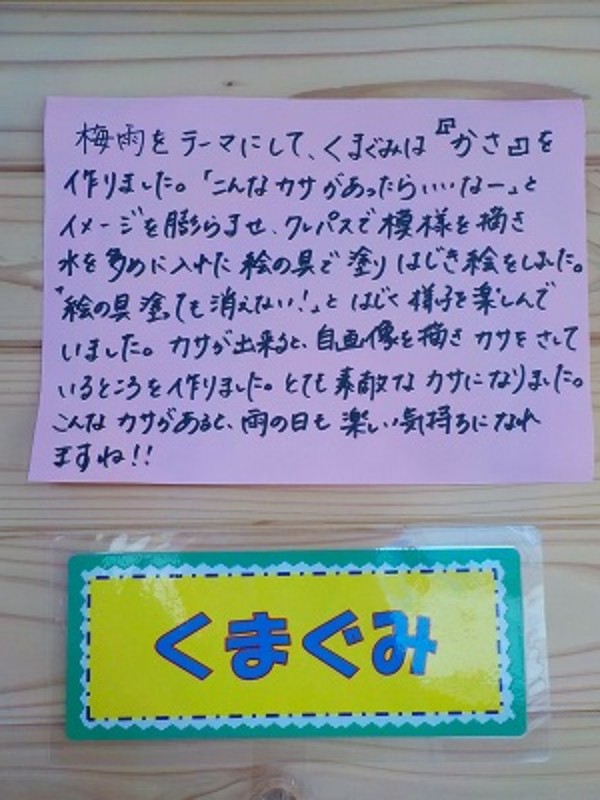 梅雨をテーマにして、くまぐみは『かさ』を
作りました。「こんなカサがあったらいいなー」と
イメージを膨らませ、クレパスで模様を描き
水を多めに入れた絵の具で塗りはじき絵をしました。
「絵の具塗っても消えない!」とはじく様子を楽しんで
いました。カサが出来ると、自画像を描きカサをさして
いるところを作りました。とても素敵なカサになりました。
こんなカサがあると、雨の日も楽しい気持ちになれ
ますね!!
くまぐみ